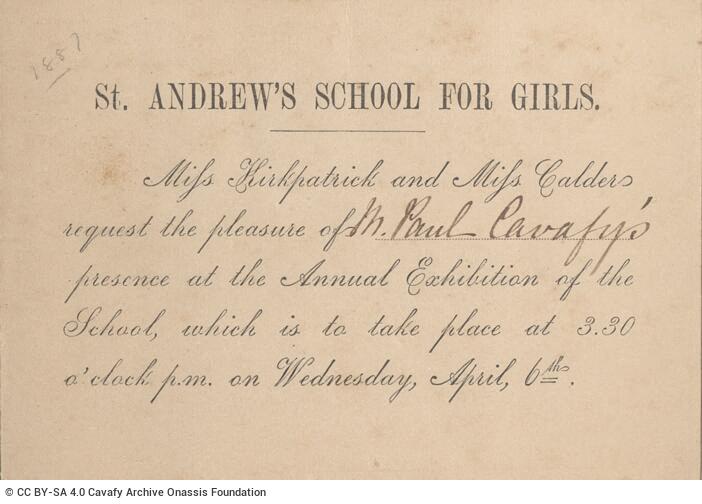 1887
St. ANDREW'S SCHOOL FOR GIRLS.
Miss Kirkpatrick and Miss Calder
request the pleasure of M. Paul Cavafy's
presence at the Annual Exhibition of the
School, which is to take place at 3.30
o'clock p.m. on Wednesday, April, 6th.
© CC BY-SA 4.0 Cavafy Archive Onassis Foundation